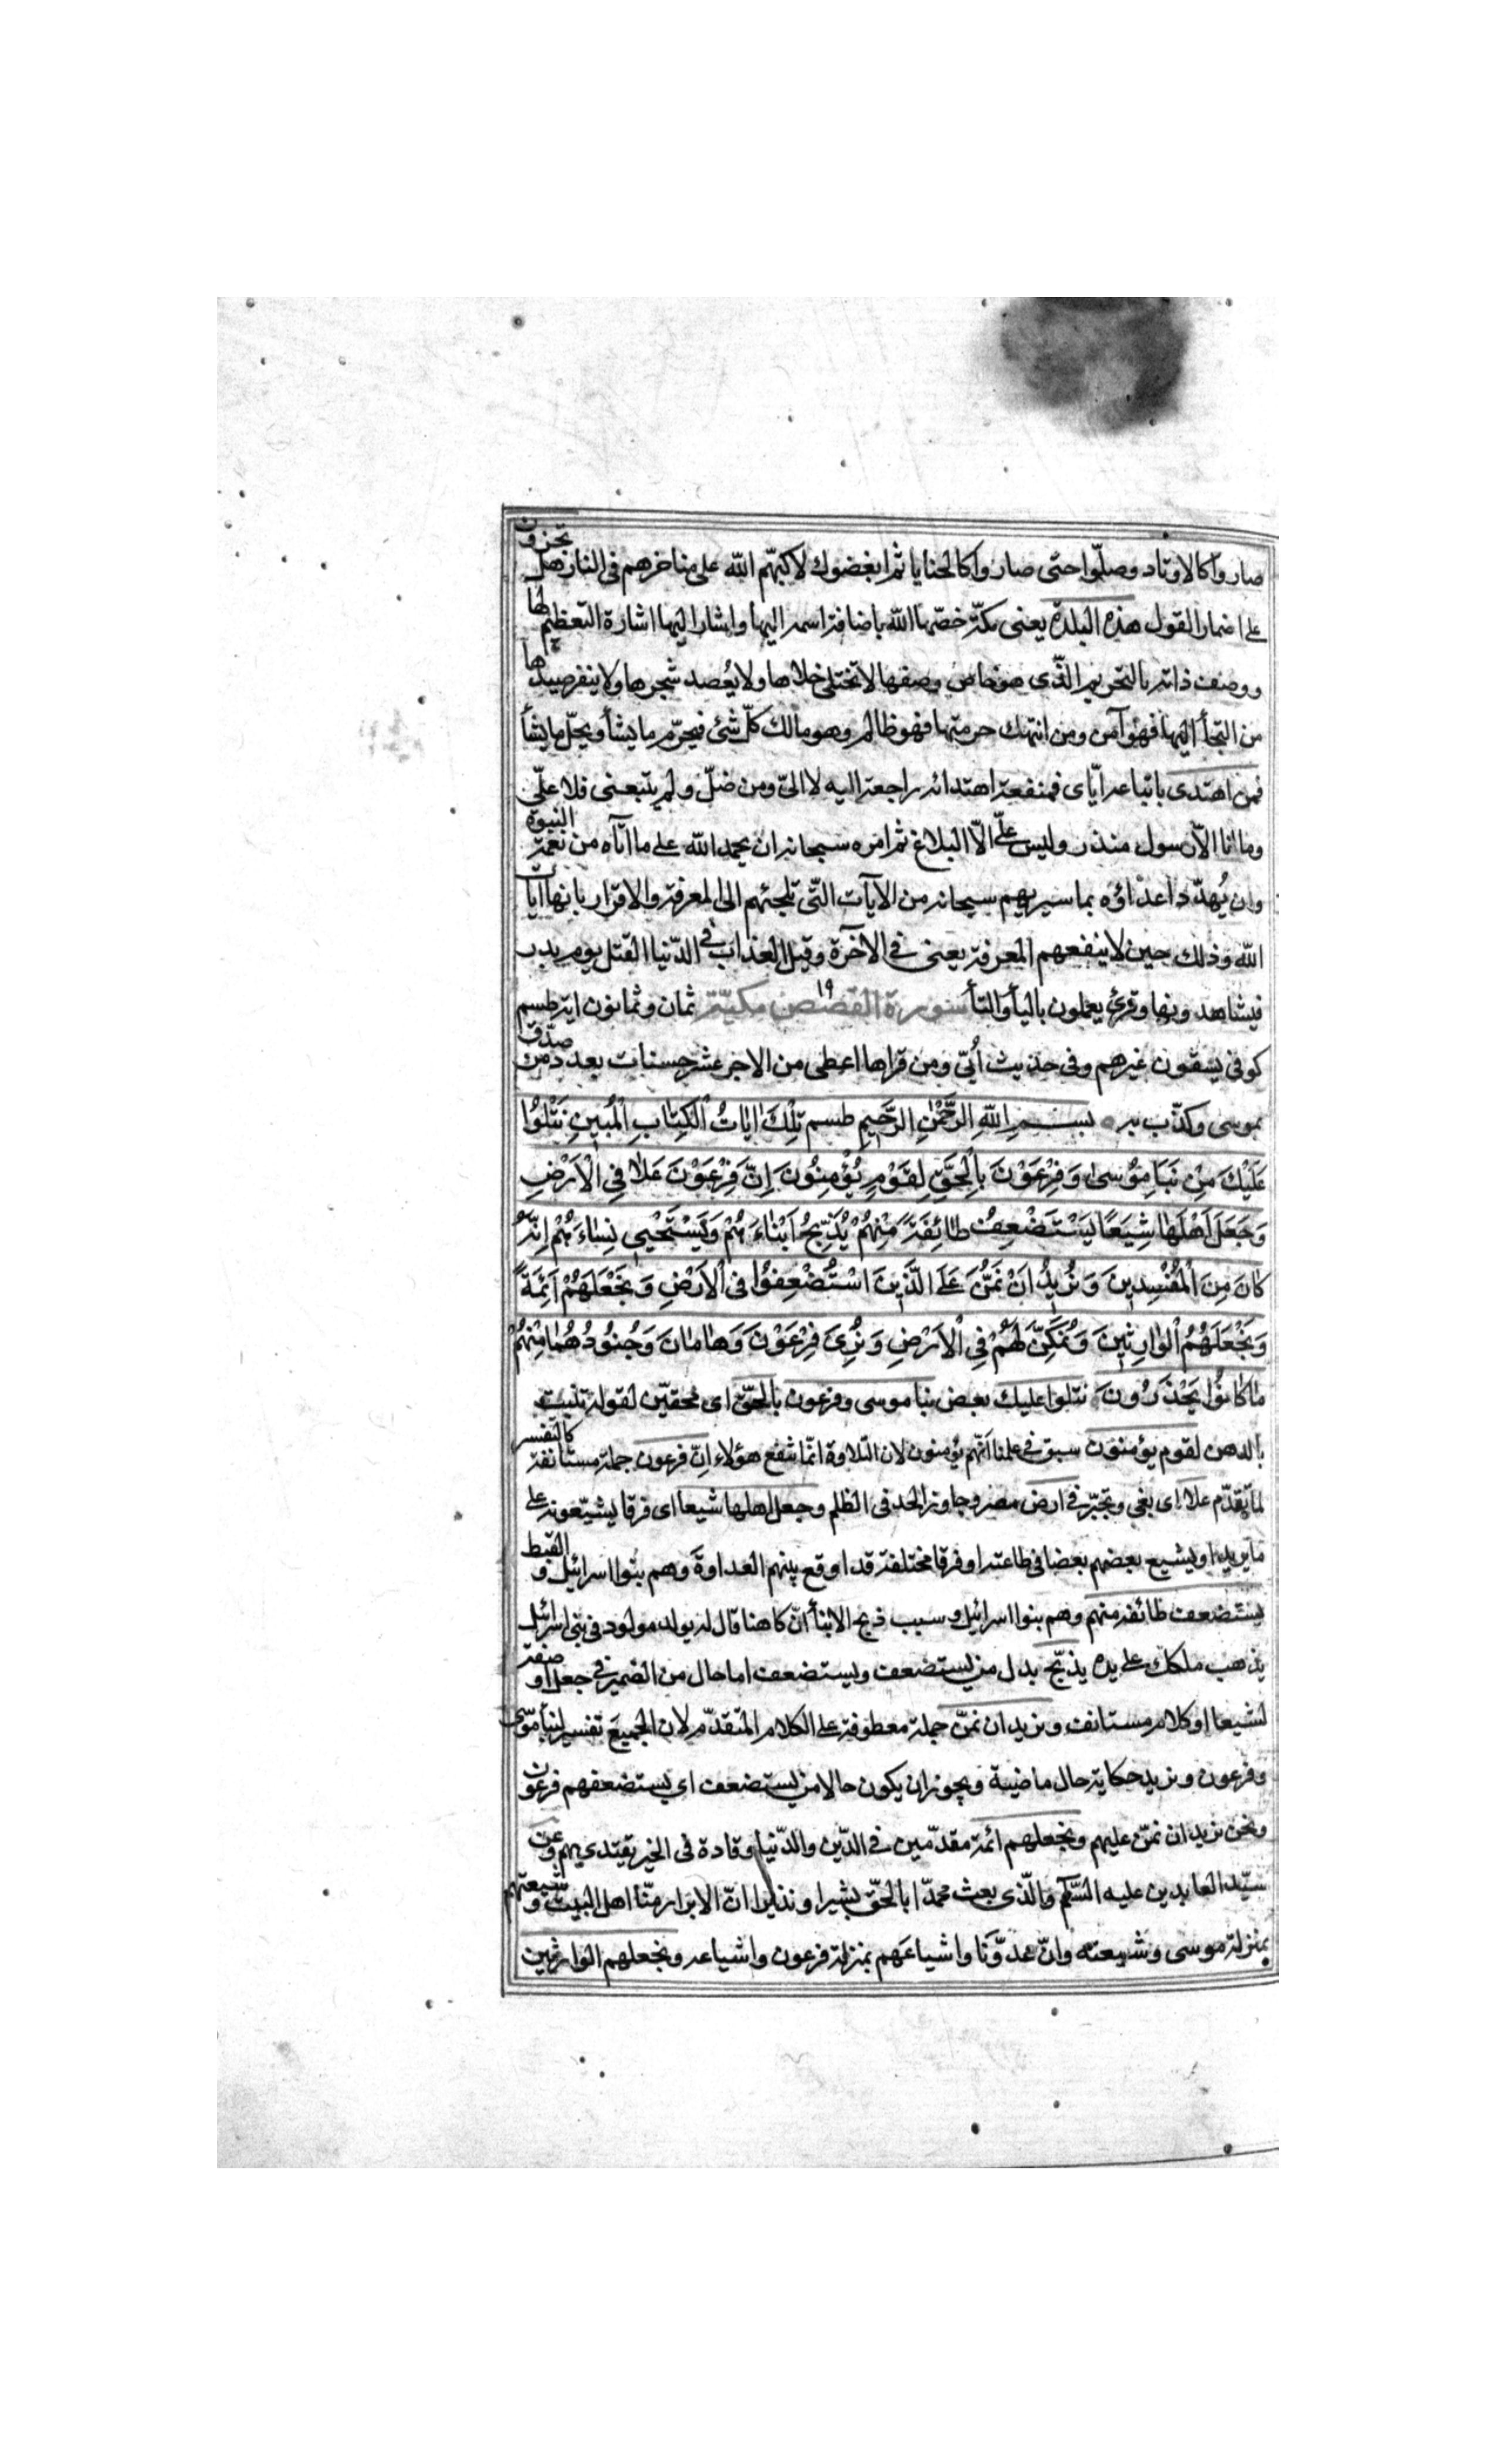 صاروا كالاوتاد وصلّوا حتى صاروا كالحنايا ثم ابغضوك لاكبّهم الله على مناخرهم فى النار هل تجزون
على اضمار القول هذه البلدة يعنى مكّة خصّها الله باضافة اسمه اليها واشار اليها اشارة التعظيم لها
ووصف ذاته بالتحريم الذّى هو خاص وصفها لا تختلى خلاها ولا يُعضد شجرها ولا ينفر صيدها
من التجأ اليها فهو آمن ومن انتهك حرمتها فهو ظالم وهو مالك كلّ شئ فيحرّم ما يشأ ويحلّ ما يشأ
فمن اهتدى باتباعه ايّاى فمنفعة اهتدائه راجعة اليه لا الىّ ومن ضلّ ولم يتبعنى فلا علىّ
وما انا الّا رسول منذر وليس علىّ الّا البلاغ ثم امره سبحانه ان يحمد الله على ما اتاه من نعمة النبوة
وان يُهدّد اعداؤه بما سيريهم سبحانه من الآيات التّى تلجئهم الى المعرفة والاقرار بانها ايات
الله وذلك حين لا ينفعهم المعرفة يعنى فى الآخرة وقيل العذاب فى الدّنيا القتل يوم بدر
فيشاهدونها وقرئ يعملون باليأ والتأ سورة القصص مكيّة ثمان وثمانون اية طسم
كوفى يسقون غيرهم وفى حديث أُبىّ ومن قراها اعطى من الاجر عشر حسنات بعدد من صدّق
بموسى وكذّب به بِسْمِ اللهِ الرَّحْمٰنِ الرَّحِيمِ طسم تِلْكَ اٰيَاتُ الْكِتٰابِ الْمُبِينِ نَتْلُوا
عَلَيْكَ مِنْ نَبَاِ مُوسىٰ وَفِرْعَوْنَ بِالْحَقِّ لِقَوْمٍ يُؤْمِنُونَ اِنَّ فِرْعَوْنَ عَلَا فِى الْاَرْضِ
وَجَعَلَ اَهْلَهٰا شِيَعًا يَسْتَضْعِفُ طٰائِفَةً مِنْهُمْ يُذَبِّحُ اَبْنٰاءَهُمْ وَيَسْتَحْيِى نِسٰاءَهُمْ اِنَّهُ
كٰانَ مِنَ الْمُفْسِدِينَ وَنُرِيدُ اَنْ نَمُنَّ عَلَى الَّذِينَ اسْتُضْعِفُوا فِى الْاَرْضِ وَنَجْعَلَهُمْ اَئِمَّةً
وَنَجْعَلَهُمُ الْوٰارِثِينَ وَنُمَكِّنَ لَهُمْ فِى الْاَرْضِ وَنُرِىَ فِرْعَوْنَ وَهٰامٰانَ وَجُنُودَهُمٰا مِنْهُمْ
مٰا كٰانُوا يَحْذَرُونَ نتلوا عليك بعض نبا موسى وفرعون بالحقّ اى محقّين لقوله تنبت
بالدهن لقوم يؤمنون سبق فى علمنا انّهم يؤمنون لان التلاوة انّما تنفع هؤلاء انّ فرعون جملة مستانفة كالتفسير
لما تقدّم علا اى بغى وتجبّر فى ارض مصر وجاوز الحد فى الظلم وجعل اهلها شيعا اى فرقا يشيّعونه على
ما يريد او يشيع بعضهم بعضا فى طاعته او فرقا مختلفة قد اوقع بينهم العداوة وهم بنوا اسرائيل و القبط
يستضعف طائفة منهم وهم بنوا اسرائيل وسبب ذبح الابنأ انّ كاهنا قال له يولد مولود فى بنى اسرائيل
يذهب ملكك على يده يذبّح بدل من يستضعف ويستضعف اما حال من الضمير فى جعل او صفة
لشيعا او كلام مستانف ونريد ان نمنّ جملة معطوفة على الكلام المتقدّم لان الجميع تفسير لنبأ موسى
وفرعون ونريد حكاية حال ماضية ويجوز ان يكون حالا من يستضعف اى يستضعفهم فرعون
ونحن نريد ان نمنّ عليهم ونجعلهم ائمة مقدّمين فى الدّين والدّنيا وقادة فى الخير يقتدى بهم وعن
سيّد العابدين عليه السّلم والّذى بعث محمدّا بالحقّ بشيرا ونذيرا انّ الابرار منّا اهل البيت و شيعتهم
بمنزلة موسى وشيعته وانّ عدوّنا واشياعَهم بمنزلة فرعون واشياعه ونجعلهم الوارثين